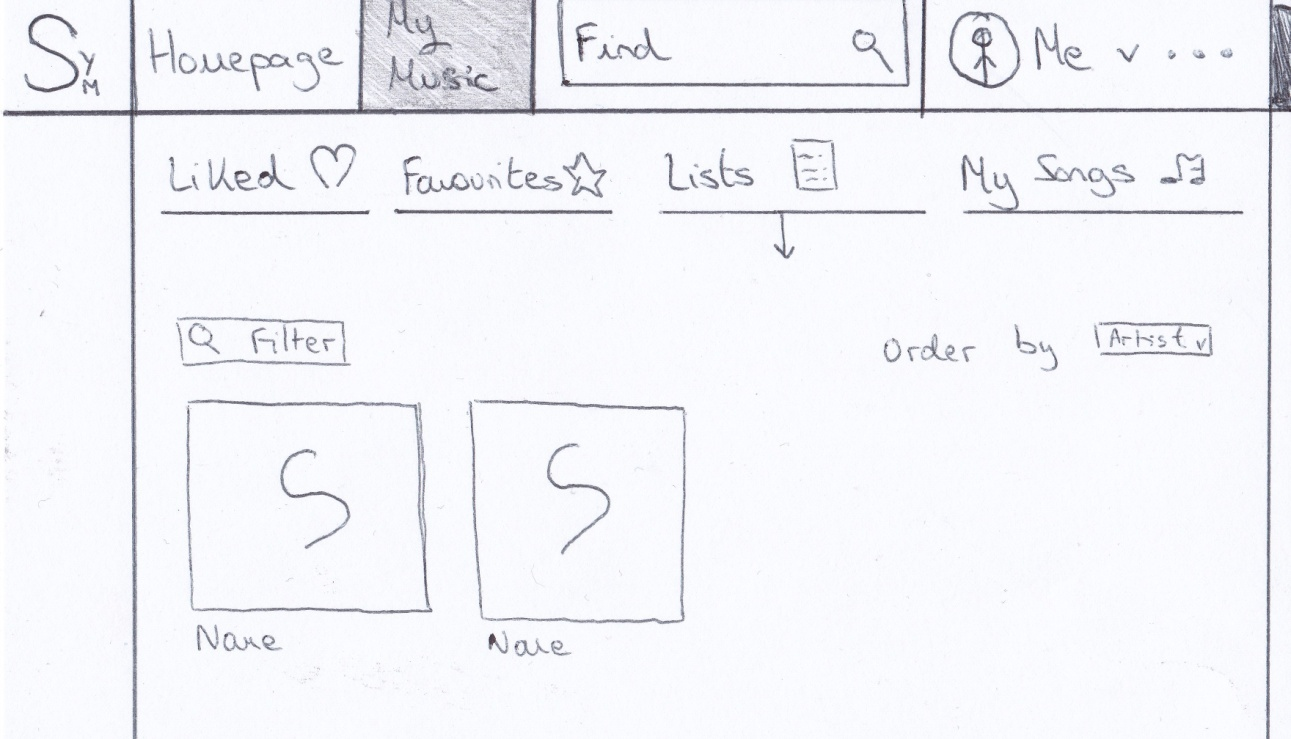 SYM
Homepage
My
Music
Find
Me v ...
Liked
Favourites
Lists
My Songs
Filter
Order by
Artist v
S
S
Name
Name